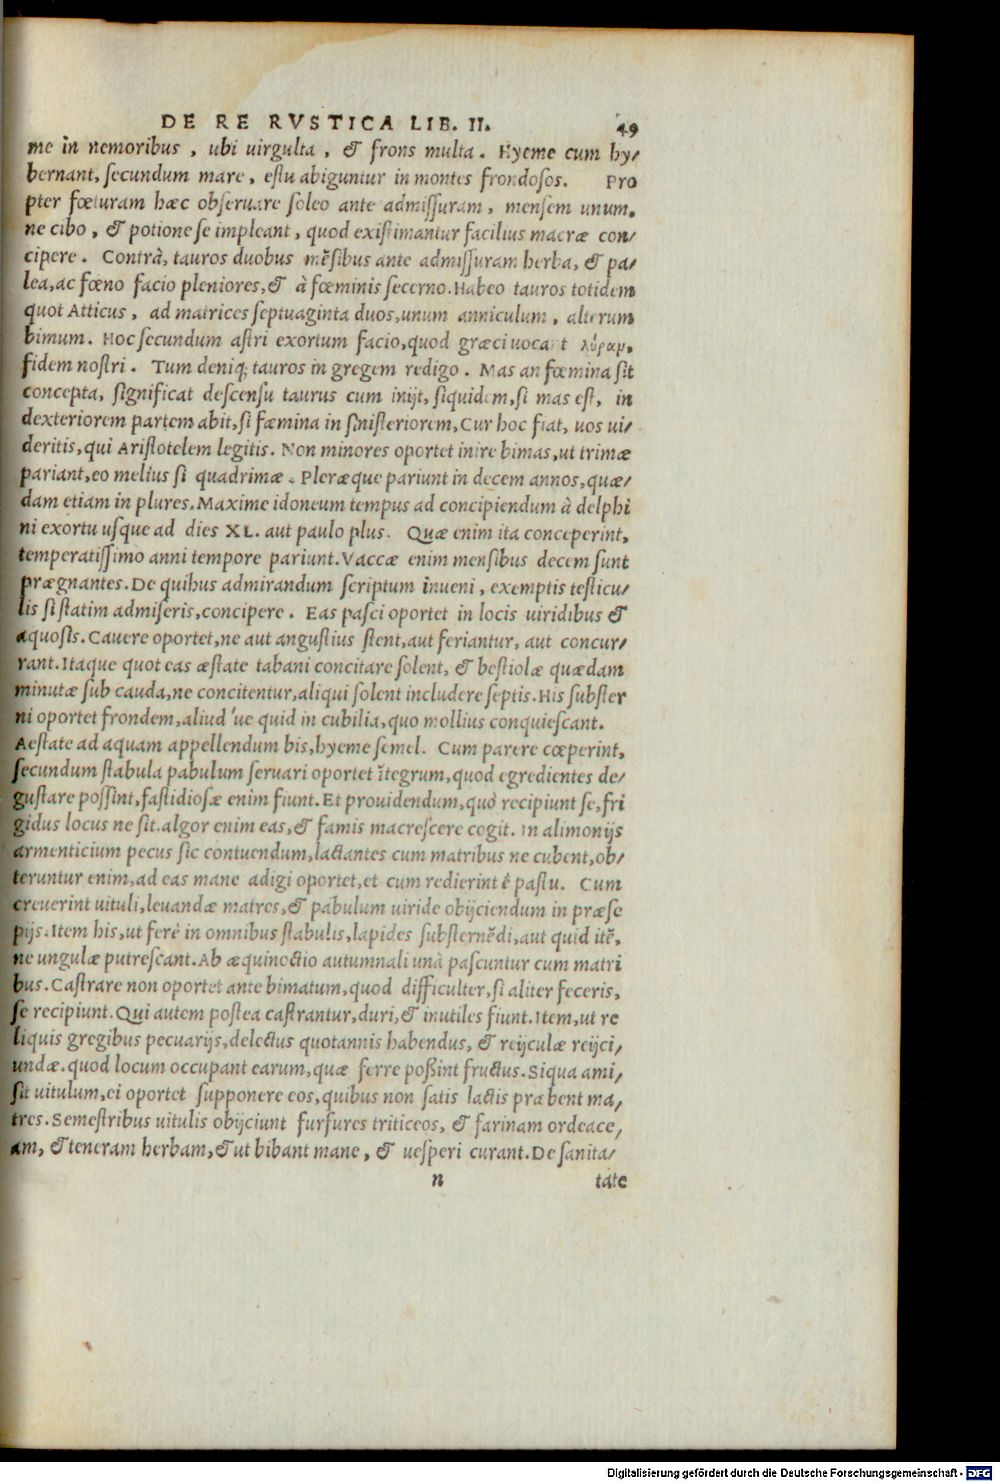 DE RE RVSTICA LIB. II. 49
me in nemoribus, ubi uirgulta, & frons multa. Hyeme cum hy/
bernant, secundum mare, estu abiguntur in montes frondosos. Pro
pter fœturam hæc obseruare soleo ante admissuram, mensem unum,
ne cibo, & potione se impleant, quod existimantur facilius macræ con/
cipere. Contrà, tauros duobus mẽsibus ante admissuram herba, & pa/
lea, ac fœno facio pleniores, & à fœminis secerno. Habeo tauros totidem
quot Atticus, ad matrices septuaginta duos, unum anniculum, alterum
bimum. Hoc secundum astri exortum facio, quod græci uocant λύραμ,
fidem nostri. Tum deniq; tauros in gregem redigo. Mas an fœmina sit
concepta, significat descensu taurus cum inijt, siquidem, si mas est, in
dexteriorem partem abit, si fæmina in sinisteriorem, Cur hoc fiat, uos ui/
deritis, qui Aristotelem legitis. Non minores oportet inire bimas, ut trimæ
pariant, eo melius si quadrimæ. Pleræque pariunt in decem annos, quæ/
dam etiam in plures. Maxime idoneum tempus ad concipiendum à delphi
ni exortu usque ad dies XL. aut paulo plus. Quæ enim ita conceperint,
temperatissimo anni tempore pariunt. Vaccæ enim mensibus decem sunt
prægnantes. De quibus admirandum scriptum inueni, exemptis testicu/
lis si statim admiseris, concipere. Eas pasci oportet in locis uiridibus &
aquosis. Cauere oportet, ne aut angustius stent, aut feriantur, aut concur/
rant. Itaque quot eas æstate tabani concitare solent, & bestiolæ quædam
minutæ sub cauda, ne concitentur, aliqui solent includere septis. His subster
ni oportet frondem, aliud 'ue quid in cubilia, quo mollius conquiescant.
Aestate ad aquam appellendum bis, hyeme semel. Cum parere cœperint,
secundum stabula pabulum seruari oportet ĩtegrum, quod egredientes de/
gustare possint, fastidiosæ enim fiunt. Et prouidendum, quò recipiunt se, fri
gidus locus ne sit. algor enim eas, & famis macrescere cogit. In alimonijs
armenticium pecus sic contuendum, lactantes cum matribus ne cubent, ob/
teruntur enim, ad eas mane adigi oportet, et cum redierint è pastu. Cum
creuerint uituli, leuandæ matres, & pabulum uiride obijciendum in præse
pijs. Item his, ut ferè in omnibus stabulis, lapides substernẽdi, aut quid itẽ,
ne ungulæ putrescant. Ab æquinoctio autumnali unà pascuntur cum matri
bus. Castrare non oportet ante bimatum, quod difficulter, si aliter feceris,
se recipiunt. Qui autem postea castrantur, duri, & inutiles fiunt. Item, ut re
liquis gregibus pecuarijs, delectus quotannis habendus, & reijculæ reijci/
undæ. quod locum occupant earum, quæ ferre poßint fructus. Siqua ami/
sit uitulum, ei oportet supponere eos, quibus non satis lactis præbent ma/
tres. Semestribus uitulis obijciunt furfures triticeos, & farinam ordeace/
am, & teneram herbam, & ut bibant mane, & uesperi curant. De sanita/
n tate
Digitalisierung gefördert durch die Deutsche Forschungsgemeinschaft - DFG